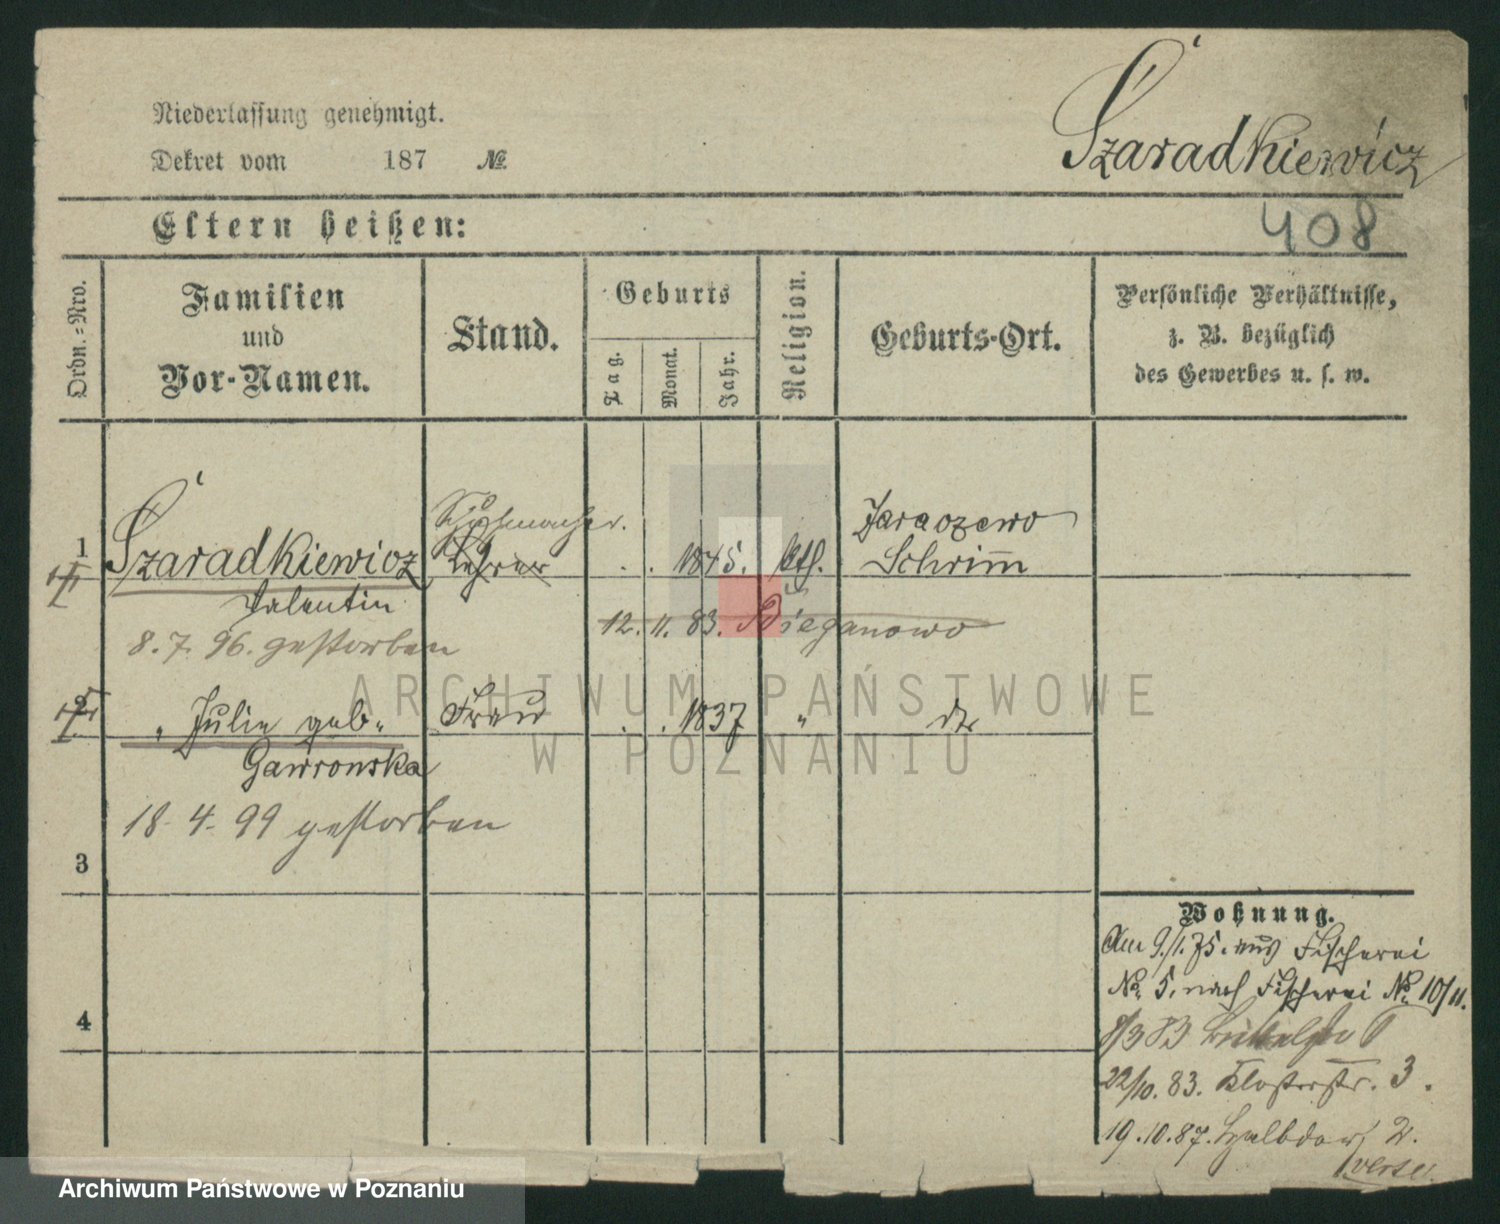 Niederlassung genehmigt.
Dekret vom 187 №
Szaradkiewicz
Eltern heißen:
408
Ordn.=Nro.
Familien
und
Vor-Namen.
Stand.
Geburts
Tag.
Monat.
Jahr.
Religion.
Geburts-Ort.
Persönliche Verhältnisse,
z. B. bezüglich
des Gewerbes u. s. w.
1
Szaradkiewicz
Valentin
Lehrer
. . 1845.
kth.
Jaraczewo
Schrimm
12. 11. 83. Bieganowo
8. 7. 96. gestorben
2
" Julie geb.
Gawronska
Frau
. . 1837
"
dto
18. 4. 99 gestorben
3
4
Wohnung.
Am 9/1.75. aus Fischerei
No. 5. nach Fischerei No. 10/11.
8/3 83
22/10. 83. Klosterstr. 3.
19. 10. 87. Halbdorf 2.
verte.
ARCHIWUM PAŃSTWOWE
W POZNANIU
Archiwum Państwowe w Poznaniu